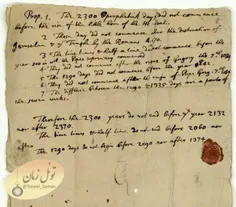 Prop. 1. The 2300 prophetick days did not commence
before the rise of the little horn of the He Goat.
2 Those day did not commence after the destruction of
Jerusalem & ye Temple by the Romans A.
3 The time times & half a time did not commence before the
year 800 in wch the Popes supremacy commenced
4 They did not commence after the reigne of Gregory the 7th
5 The 1290 days did not commence before the year 842.
6 They did not commence after the reigne of Pope Greg. 7th
7 The difference between the 1290 & 1335 days are a parts of
the seven weeks.
Therefore the 2300 years do not end before ye year 2132
nor after 2370.
The time times & half time do not end before 2060 nor
after
The 1290 days do not begin before 2090 nor after 1374
تونل زمان
@Tunnel_Zaman